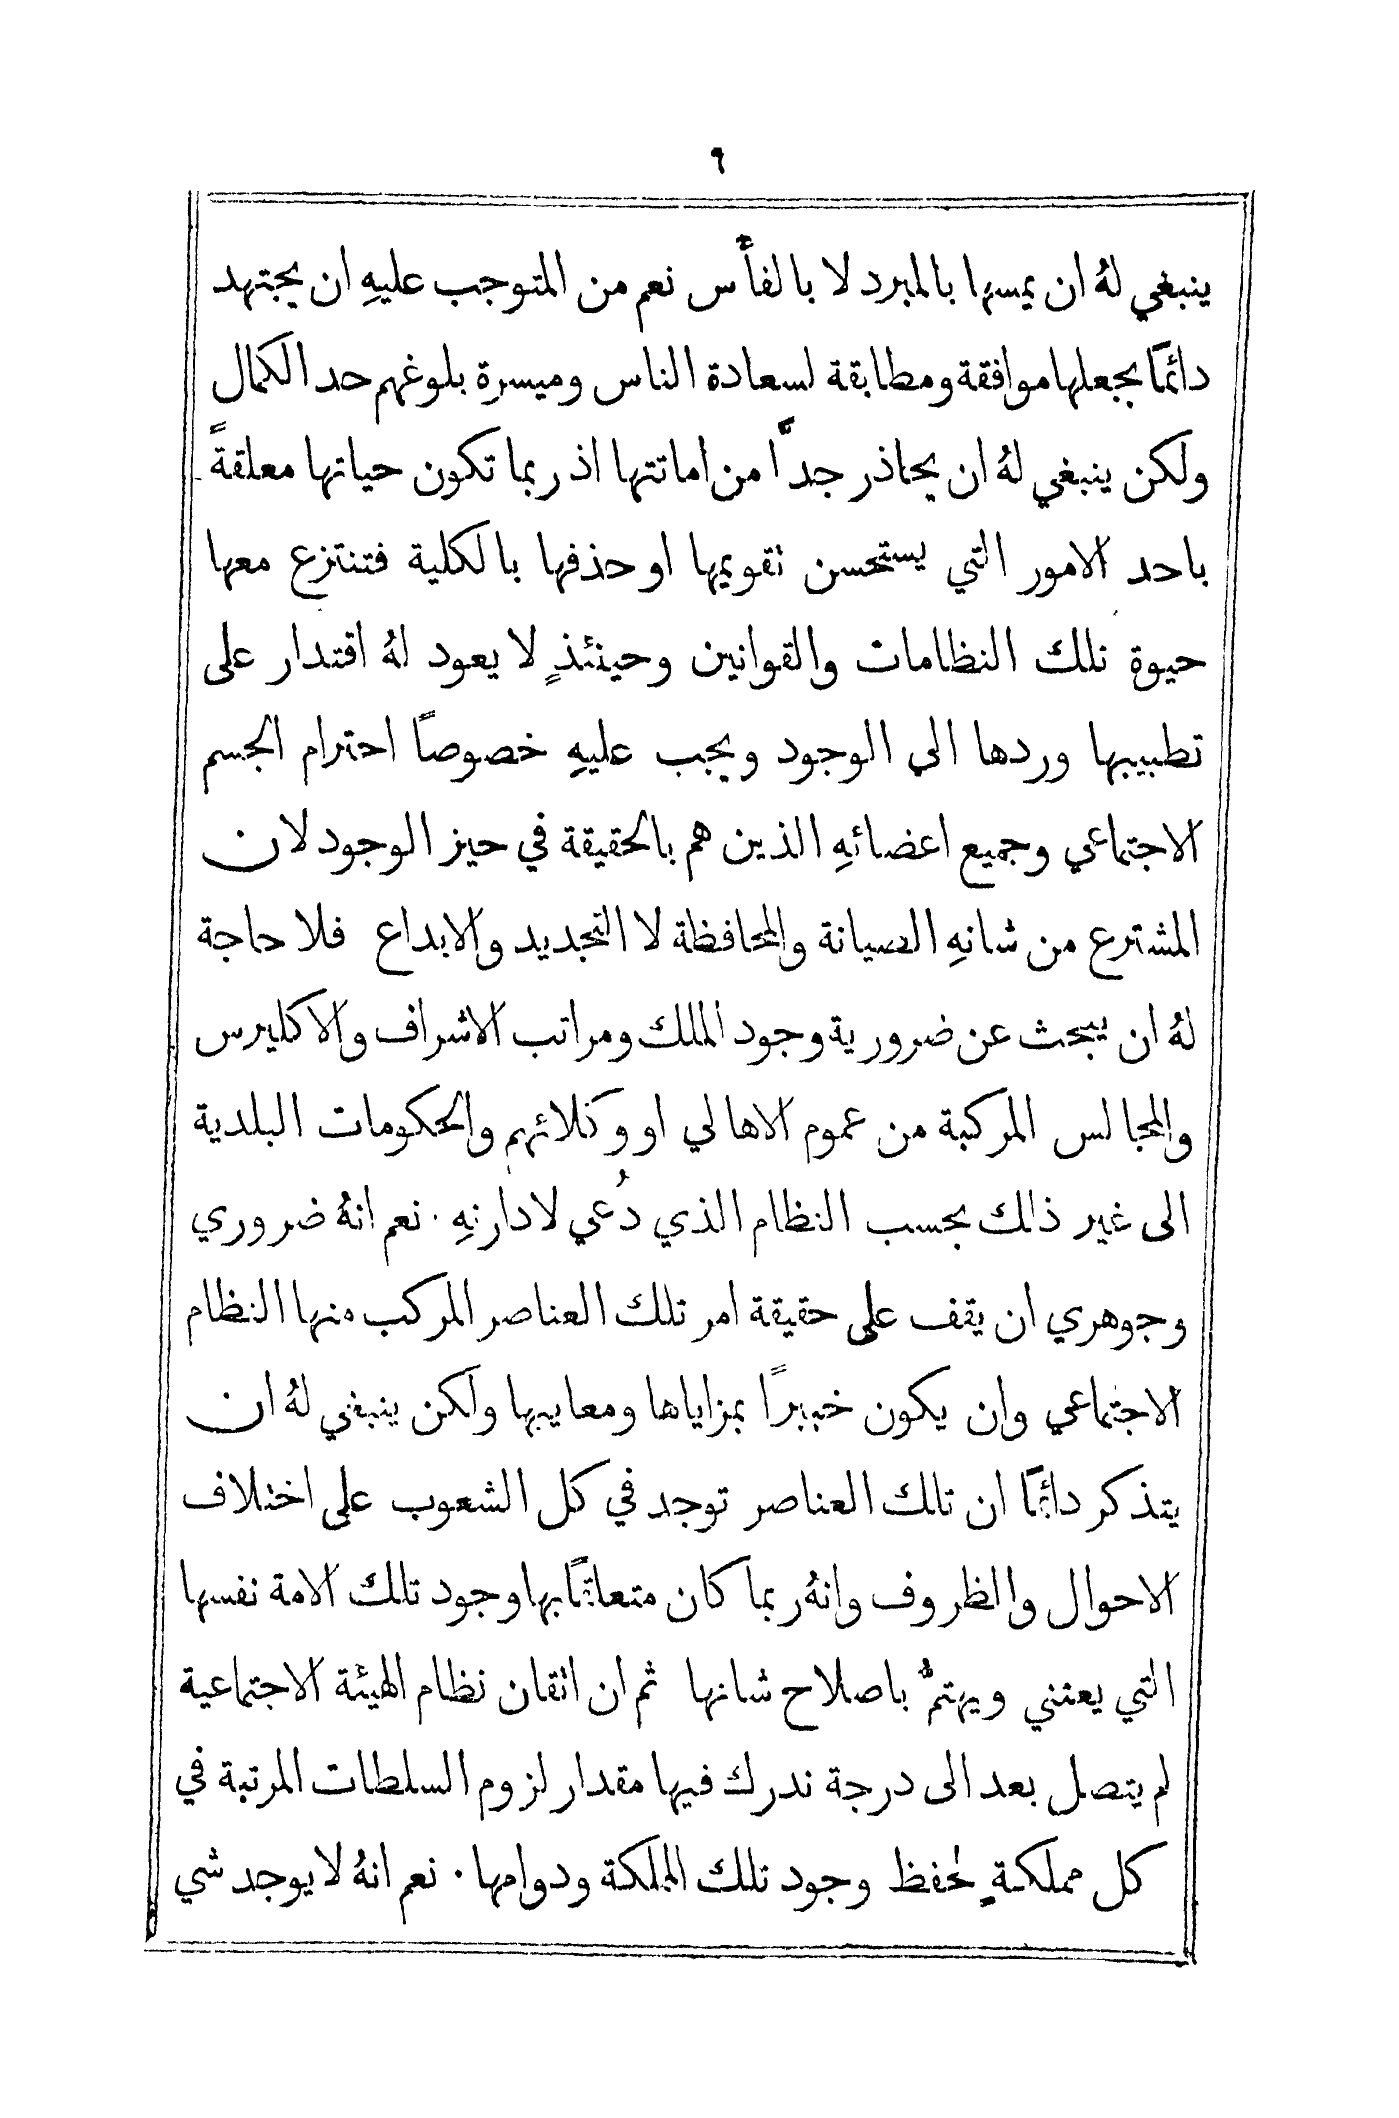 ٦
ينبغي لهُ ان يمسها بالمبرد لا بالفأس نعم من المتوجب عليهِ ان يجتهد
دائمًا بجعلها موافقة ومطابقة لسعادة الناس وميسرة بلوغهم حد الكمال
ولكن ينبغي لهُ ان يحاذر جدًّا من اماتتها اذ ربما تكون حياتها معلقةً
باحد الامور التي يستحسن تقويمها او حذفها بالكلية فتنتزع معها
حيوة تلك النظامات والقوانين وحينئذٍ لا يعود لهُ اقتدار على
تطبيبها وردها الى الوجود ويجب عليهِ خصوصًا احترام الجسم
الاجتماعي وجميع اعضائهِ الذين هم بالحقيقة في حيز الوجود لان
المشترع من شانهِ الصيانة والمحافظة لا التجديد والابداع فلا حاجة
لهُ ان يبحث عن ضرورية وجود الملك ومراتب الاشراف والاكليرس
والمجالس المركبة من عموم الاهالي او وكلائهم والحكومات البلدية
الى غير ذلك بحسب النظام الذي دُعي لادارتهِ · نعم انهُ ضروري
وجوهري ان يقف على حقيقة امر تلك العناصر المركب منها النظام
الاجتماعي وان يكون خبيرًا بمزاياها ومعايبها ولكن ينبغي لهُ ان
يتذكر دائمًا ان تلك العناصر توجد في كل الشعوب على اختلاف
الاحوال والظروف وانهُ ربما كان متعلقًا بها وجود تلك الامة نفسها
التي يعتني ويهتمُّ باصلاح شانها ثم ان اتقان نظام الهيئة الاجتماعية
لم يتصل بعد الى درجة ندرك فيها مقدار لزوم السلطات المرتبة في
كل مملكةٍ لحفظ وجود تلك المملكة ودوامها · نعم انهُ لا يوجد شي